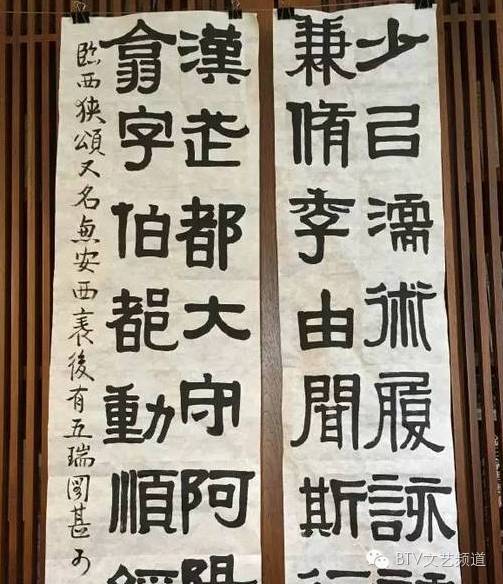 少㠯濡術履詠
兼脩季由聞斯行
漢武都大守阿陽
翕字伯都動順經
臨西狹頌又名惠安西表後有五瑞圖甚可
BTV文艺频道